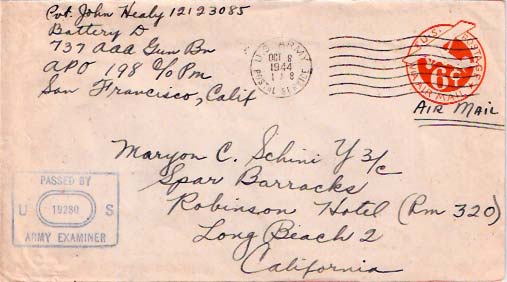 Pvt. John Healy 12123085
Battery D
737 AAA Gun Bn
APO 198 c/o Pm
San Francisco, Calif
U.S. ARMY
OCT 8
1944
POSTAL SERVICE
U.S. POSTAGE
6¢
VIA AIR MAIL
AIR MAIL
Maryon C. Schini Y 3/c
Spar Barracks
Robinson Hotel (Rm 320)
Long Beach 2
California
PASSED BY
U 19280 S
ARMY EXAMINER